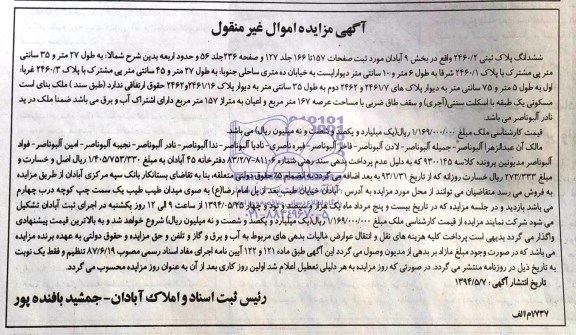 آگهی مزایده اموال غیر منقول
ششدانگ پلاک ثبتی ۲۴۶۰/۲ واقع در بخش ۹ آبادان مورد ثبت صفحات ۱۵۷تا ۱۶۶ جلد ۱۲۷ و صفحه ۲۳۶جلد ۵۶ و حدود اربعه بدین شرح شمالا: به طول ۲۷ متر و ۳۵ سانتی
متر پی مشترک با پلاک ۲۴۶۰/۱ شرقا به طول ۶ متر و ۱۰ سانتی متر دیواریست به خیابان ده متری ساحلی جنوبا: به طول ۲۷ متر و ۴۵ سانتی متر پی مشترک با پلاک ۲۴۶۰/۳ غربا:
اول به طول ۵ متر و ۷۵ سانتی متر به دیوار پلاک های ۲۴۶۱/۷ و ۲۴۶۲ دوم به طول ۳۵ سانتی متر به دیوار پلاک ۲۴۶۱/۱۶و۲۴۶۲ حقوق ارتفاقی ندارد (طبق سند) ملک بنای است
مسکونی یک طبقه با اسکلت سنتی(آجری) و سقف طاق ضربی با مساحت عرصه ۱۶۷ متر مربع و اعیان به متراژ ۱۵۷ متر مربع دارای اشتراک آب و برق می باشد ضمنا ملک در ید
نادر آلبوناصر می باشد.
قیمت کارشناسی ملک مبلغ ۱/۱۶۹/۰۰۰/۰۰۰ ریال(یک میلیارد و یکصد و شصت و نه میلیون ریال) می باشد.
مالک آن عبدالزهرا آلبوناصر- جمیله آلبوناصر- لادن آلبوناصر- فاخر آلبوناصر- فیره ناصری- نادیا آلبوناصر- ندا آلبوناصر- نادر آلبوناصر- نجیبه آلبوناصر- امین آلبوناصر- فواد
آلبوناصر مدیونین پرونده کلاسه ۹۳۰۰۱۴۵ که به دلیل عدم پرداخت بدهی سند رهنی شماره ۸۱۱۰۶-۸۳/۲/۷ دفترخانه ۴۵ آبادان به مبلغ ۱/۴۰۵/۷۵۳/۳۳۰ ریال اصل و خسارت و
۲۷۳/۳۳۳ ریال خسارت روزانه که از تاریخ ۹۳/۱/۳۱ به بعد اضافه می گردد به انضمام ۵٪ حقوق دولتی متعلقه، بنا به تقاضای بستانکار بانک سپه مرکزی آبادان از طریق مزایده
به فروش می رسد متقاضیان می توانند از محل مورد مزایده به آدرس آبادان خیابان طیب بعد از پل امام رضا(ع) به سوی میدان طیب طیب یک سمت چپ کوچه درب چهارم
می باشد بازدید و در جلسه مزایده که در تاریخ بیست و پنج مرداد ماه یک هزار و سیصد و نود و چهار ۱۳۹۴/۰۵/۲۵ از ساعت ۹ الی ۱۲ روز یکشنبه در اجرای ثبت آبادان تشکیل
می شود شرکت نمایند مزایده از قیمت کارشناسی ملک مبلغ ۱/۱۶۹/۰۰۰/۰۰۰ ریال(یک میلیارد و یکصد و شصت و نه میلیون ریال) شروع خواهد شد و به بالاترین قیمت پیشنهادی
واگذار می گردد بدیهی است پرداخت کلیه هزینه های نقل و انتقال عوارض مالیات بدهی های مربوط به آب و برق و گاز و تلفن و حق مزایده و حقوق دولتی به عهده برنده مزایده
می باشد که در صورت وجود مبلغ مازاد بر بدهی از مدیون وصول می گردد این آگهی طبق ماده ۱۲۱ و ۱۲۲ آیین نامه اجرای مفاد اسناد رسمی مصوب ۸۷/۶/۱۹ تنظیم و فقط یک نوبت
به تاریخ ذیل در روزنامه منتشر می گردد. در صورتی که روز مزایده به هر دلیلی تعطیل اعلام شد اولین روز کاری بعد از آن به عنوان روز مزایده محسوب می گردد.
تاریخ انتشار آگهی : ۱۳۹۴/۵/۷
رئیس ثبت اسناد و املاک آبادان- جمشید بافنده پور
۱۷۳۷/م الف